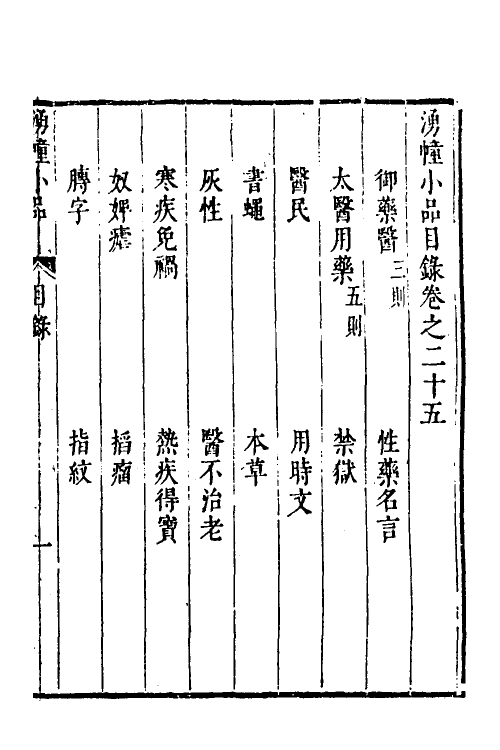 湧幢小品目錄卷之二十五
御藥醫三則 性藥名言
太醫用藥五則 禁獄
醫民 用時文
書蠅 本草
灰性 醫不治老
寒疾免禍 熱疾得寶
奴婢瘧 搯瘤
膊字 指紋
湧幢小品 目錄 一